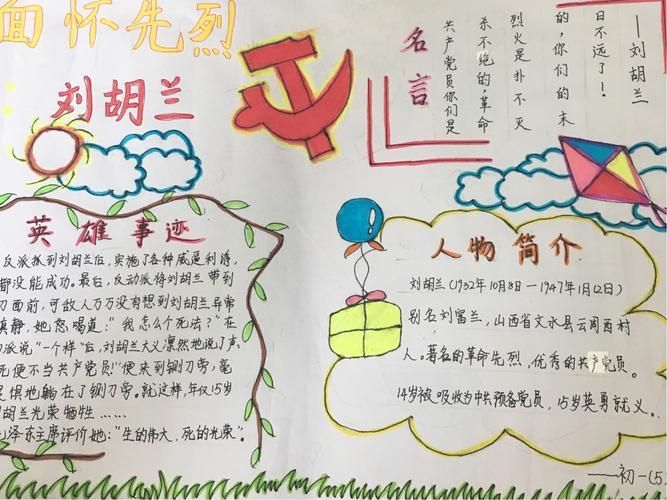 面怀先烈
刘胡兰
名言
共产党员你们是
杀不绝的,革命
烈火是扑不灭
的,你们的末
日不远了!
——刘胡兰
英雄事迹
反派抓到刘胡兰后,实施了各种威逼利诱,
都没能成功。最后,反动派将刘胡兰带到
刀面前,可敌人万万没有想到刘胡兰异常
镇静,她怒喝道:“我怎么个死法?”在
动派说“一个样”后,刘胡兰大义凛然地说了声:
死便不当共产党员”便来到铡刀旁,毫
惧地躺在了铡刀旁。就这样,年仅15岁
胡兰光荣牺牲……
毛泽东主席评价她:“生的伟大,死的光荣”。
人物简介
刘胡兰(1932年10月8日—1947年1月12日)
别名刘富兰,山西省文水县云周西村
人。著名的革命先烈,优秀的共产党员。
14岁被吸收为中共预备党员,15岁英勇就义。
——初一(5